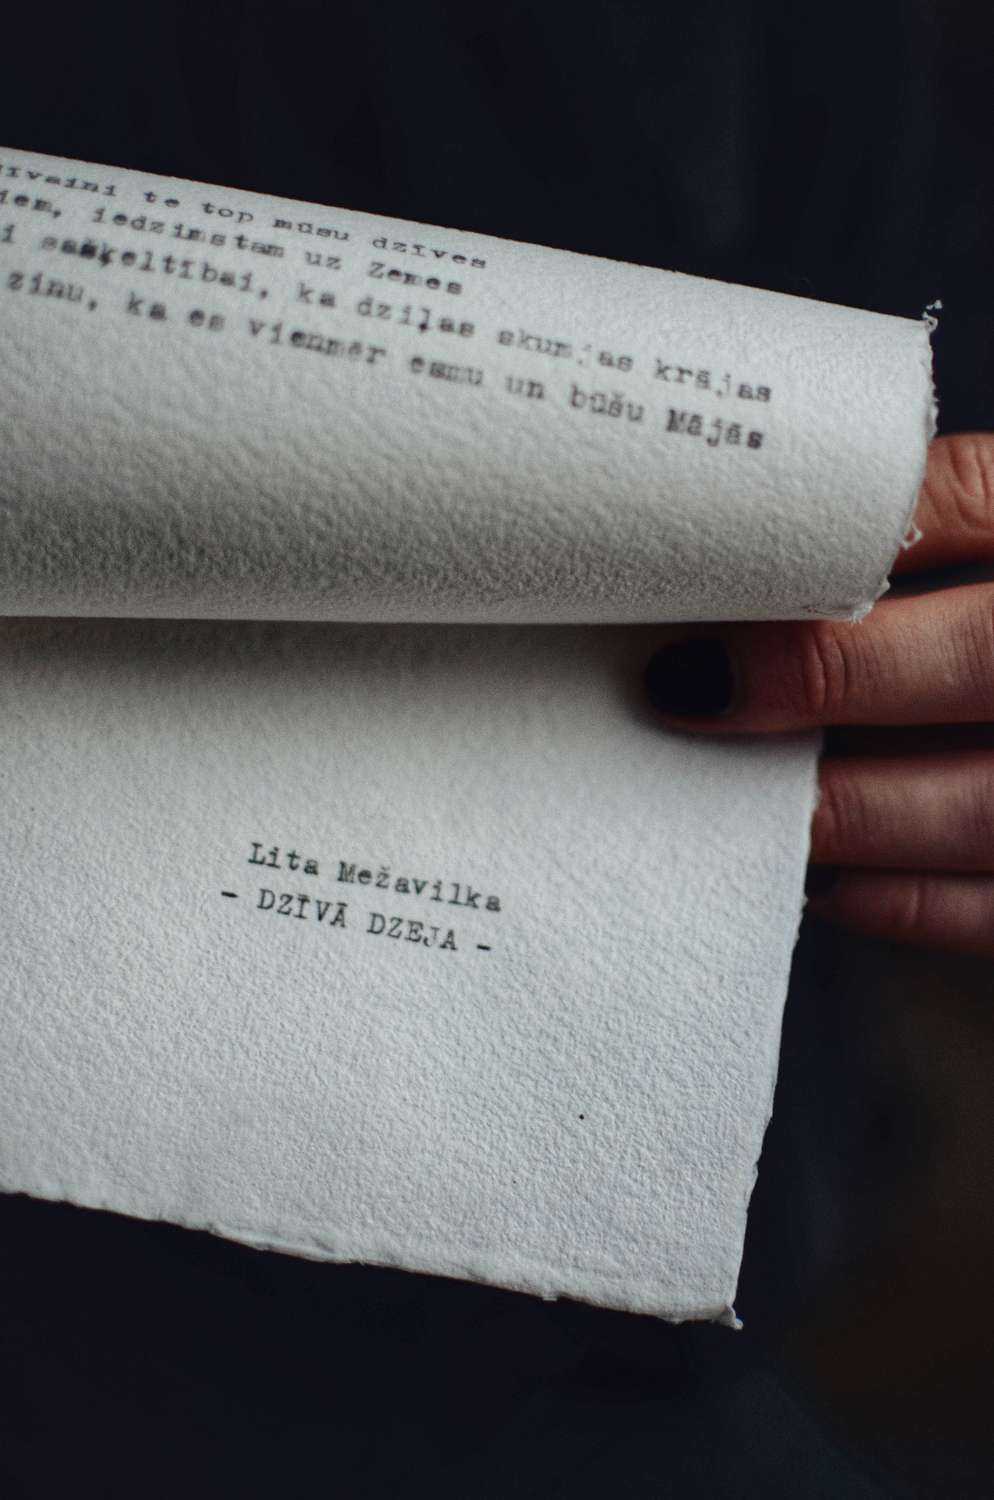 te top mūsu dzīves
iedzimstam uz Zemes
sašķeltībai, ka dziļas skumjas krājas
zinu, ka es vienmēr esmu un būšu Mājās
Lita Mežavilka
- DZĪVĀ DZEJA -